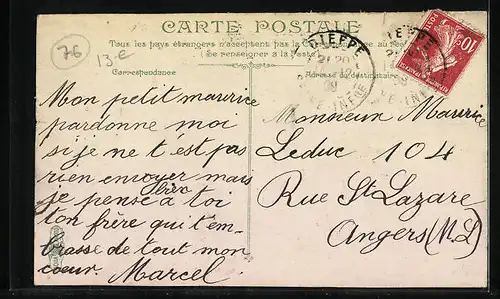 76
13.-€
CARTE POSTALE
Tous les pays étrangers n'acceptent pas la Correspondance au
(Se renseigner à la Poste)
Correspondance
Mon petit maurice
pardonne moi
si je ne t'est pas
rien envoyer mais
je pense bien à toi
ton frère qui t'em-
brasse de tout mon
coeur. Marcel
DIEPPE
DIEPPE
10
Adresse du destinataire
Monsieur Maurice
Leduc 104
Rue St Lazare
Angers (M.L)